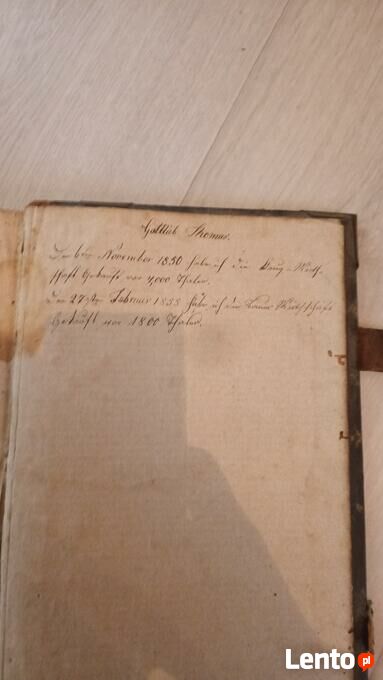 Gottlieb Thomas.
Den 6ten November 1850 habe ich die Wirth-
schaft Gekauft vor 4,000 Thaler.
Den 27sten Februar 1858 habe ich die Bauer Wirthschaft
Gekauft vor 1800 Thaler.
Lento.pl